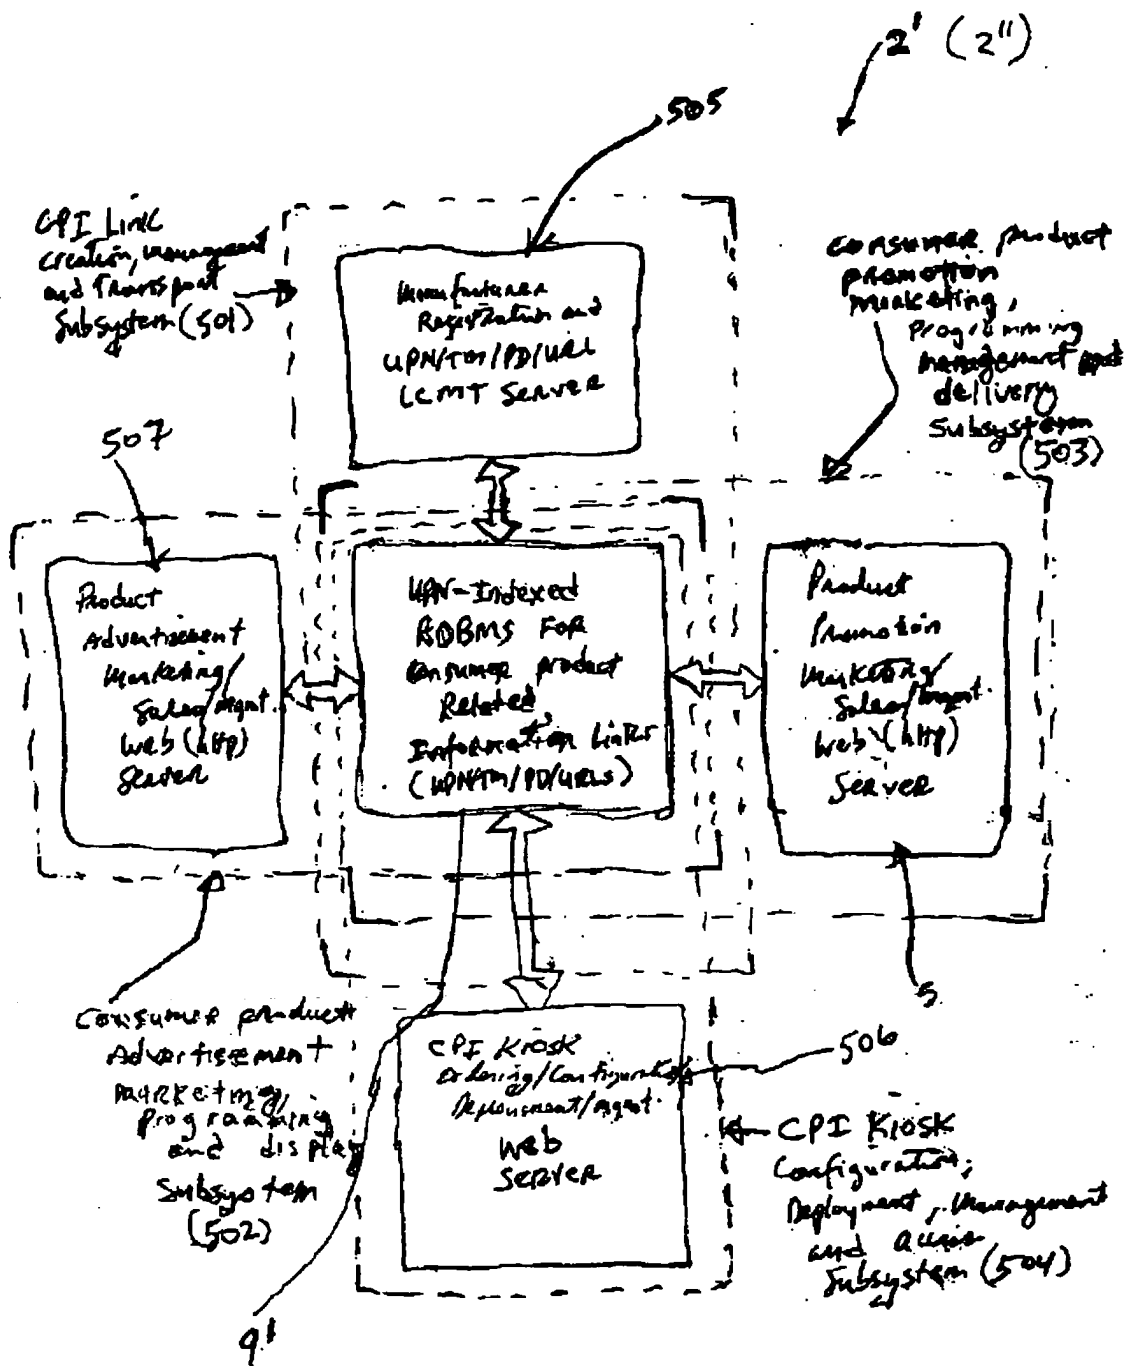 2' (2")
505
CPI Link
Creation, Management
and Transport
Subsystem (501)
Manufacturer
Registration and
UPN/TM/PD/URL
LCMT Server
Consumer product
promotion
marketing,
Programming
management and
delivery
Subsystem
(503)
507
Product
Advertisement
Marketing/
Sales/Mgmt.
Web (http)
Server
UPN-Indexed
RDBMS FOR
Consumer product
Related
Information Links
(UPN/TM/PD/URLs)
Product
Promotion
Marketing/
Sales/Mgmt.
Web (http)
Server
5
Consumer product
Advertisement
marketing,
programming
and display
Subsystem
(502)
CPI Kiosk
Ordering/Configuration
Deployment/Mgmt.
Web
SERVER
506
CPI Kiosk
Configuration,
Deployment, Management
and
Subsystem (504)
9'